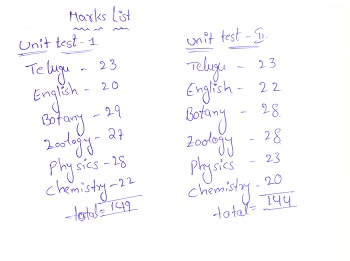 Marks List
Unit test - 1
Telugu - 23
English - 20
Botany - 29
Zoology - 27
Physics - 28
Chemistry - 22
total = 149
Unit test - II.
Telugu - 23
English - 22
Botany - 28
Zoology - 28
Physics - 23
Chemistry - 20
total = 144